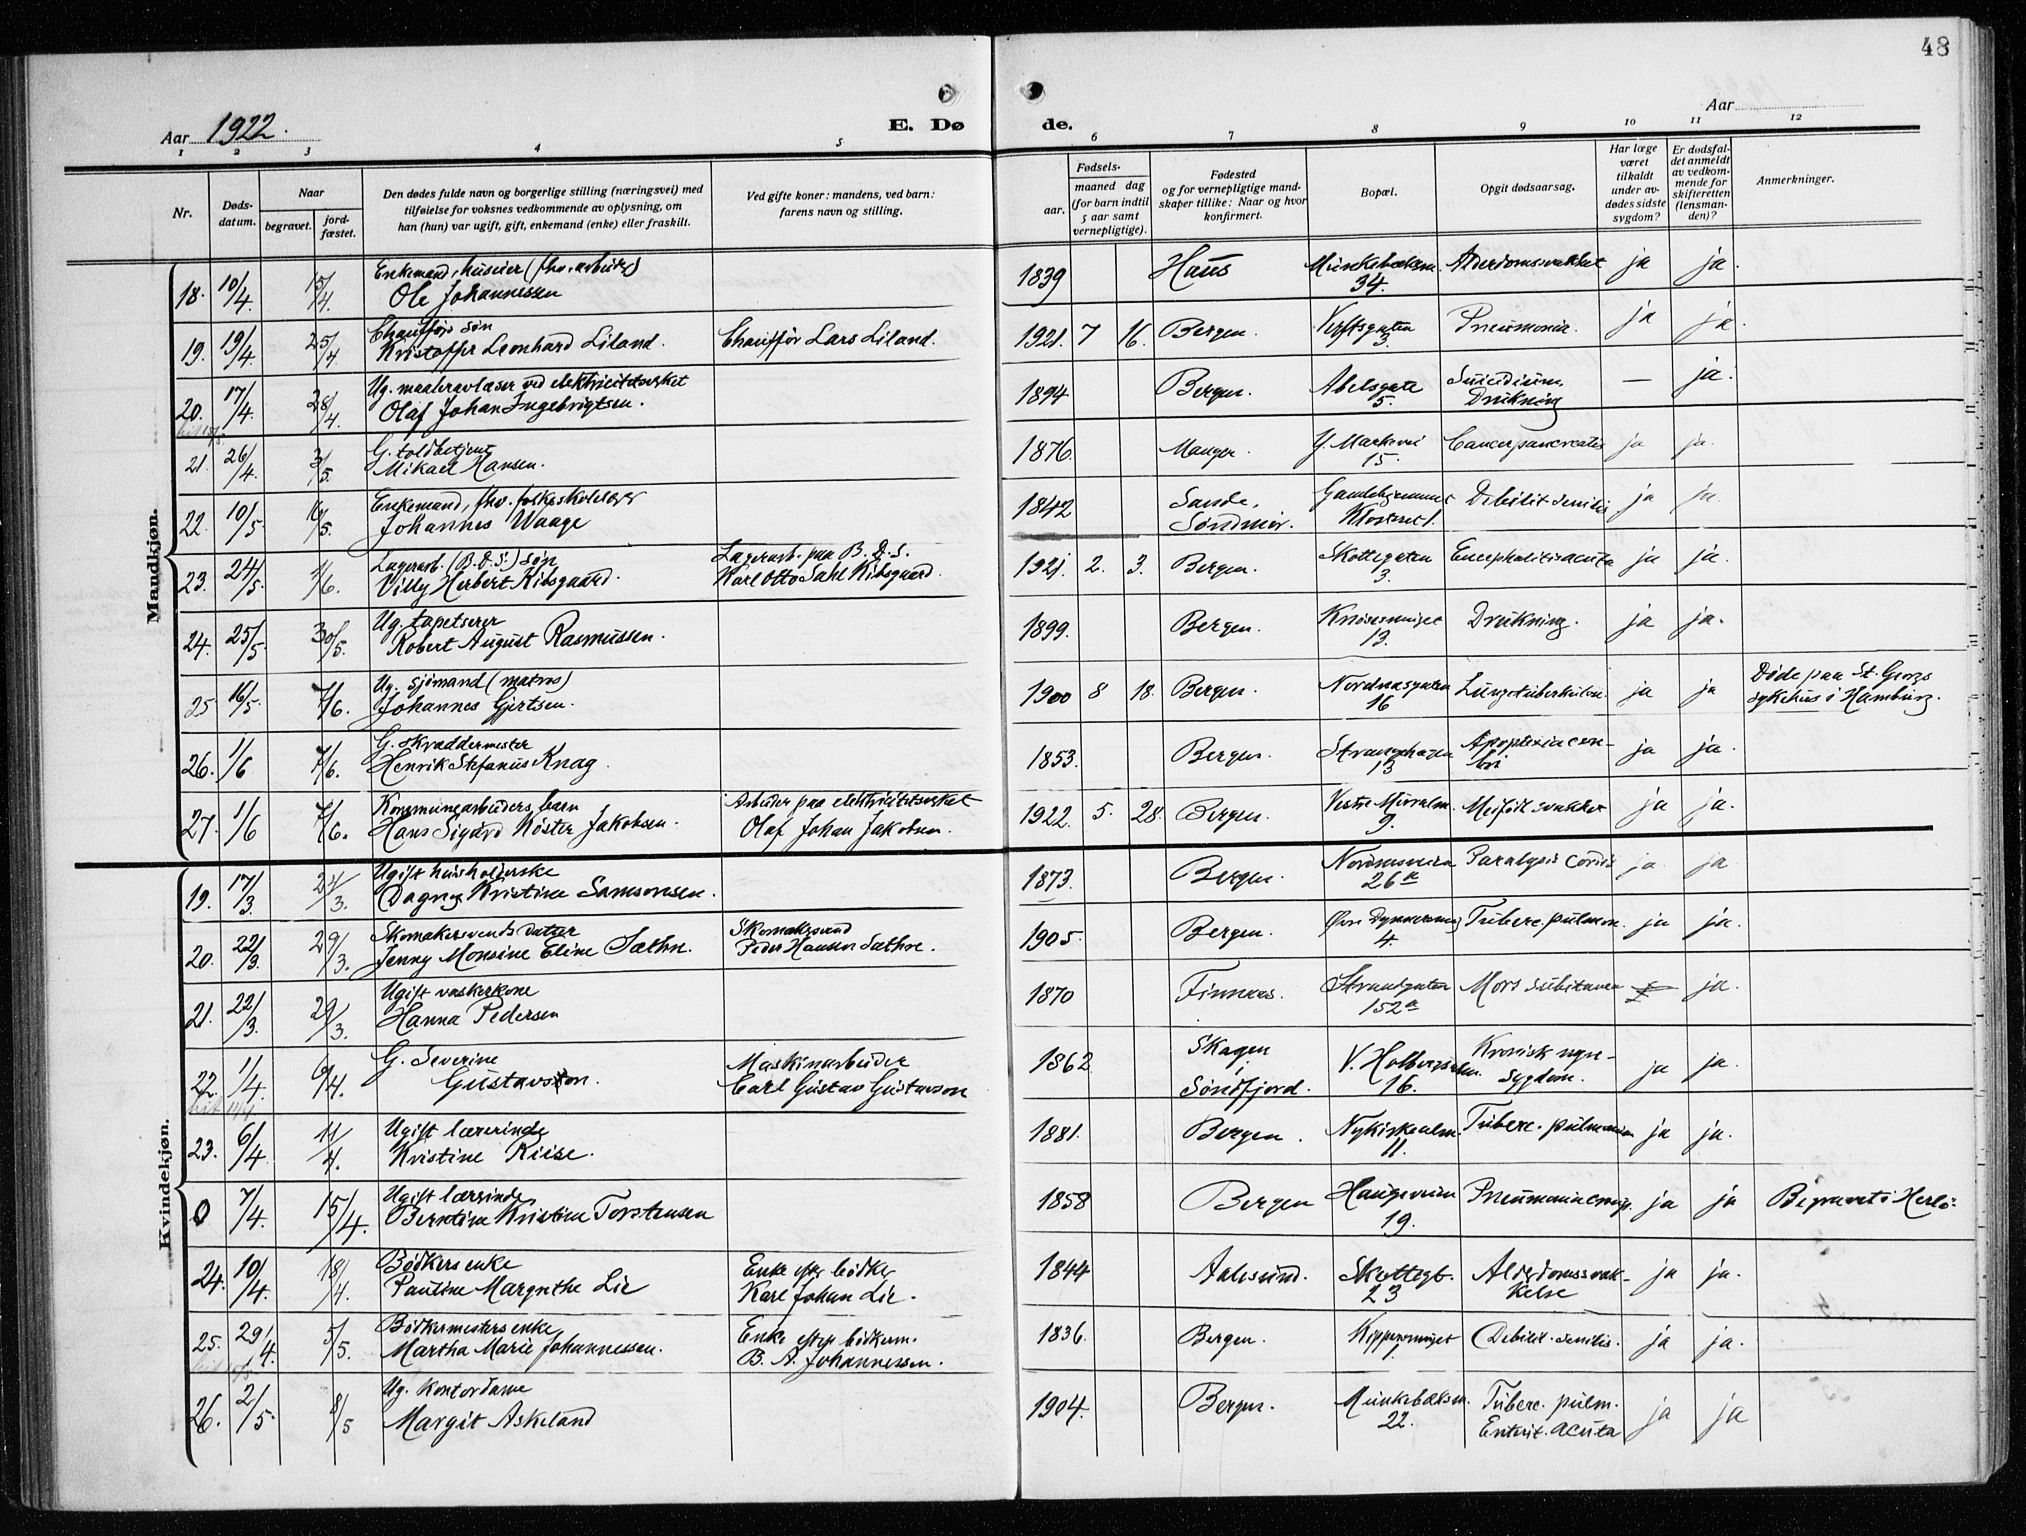 48
Aar 1922.
E. Døde.
Aar
1 2 3 4 5 6 7 8 9 10 11 12
Nr.
Døds-
datum.
Naar
begravet.
jord-
fæstet.
Den dødes fulde navn og borgerlige stilling (næringsvei) med
tilføielse for voksnes vedkommende av oplysning, om
han (hun) var ugift, gift, enkemand (enke) eller fraskilt.
Ved gifte koner: mandens, ved barn:
farens navn og stilling.
Fødsels-
aar.
maaned dag
(for barn indtil
5 aar samt
vernepligtige).
Fødested
og for vernepligtige mand-
skaper tillike: Naar og hvor
konfirmert.
Bopæl.
Opgit dødsaarsag.
Har læge
været
tilkaldt
under av-
dødes sidste
sygdom?
Er dødsfal-
det anmeldt
av vedkom-
mende for
skifteretten
(lensman-
den)?
Anmerkninger.
Mandkjøn.
18. 10/4 15/4 Enkemand, huseier (fhv. arbeider)
Ole Johannessen
1839 Haus Munkebæksm. 34. Alderdomssvækket ja ja.
19. 19/4 25/4 Chaufførs søn
Kristoffer Leonhard Liland. Chauffør Lars Liland.
1921. 7 16. Bergen. Verftsgaten 3. Pneumonia. ja ja.
20. 17/4 28/4 Ug. maaleravlæser ved elektricitetsverket
Olaf Johan Ingebrigtsen.
1894 Bergen. Abelsgate 5. Suicidium. Drukning — ja.
21. 26/4 3/5. G. toldbetjent
Mikael Hansen.
1876. Manger. Y. Markevei 15. Cancer pancreatis ja ja.
22. 10/5 16/5. Enkemand, fhv. folkeskolelærer
Johannes Waage
1842 Sande, Søndmør. Gamlehjemmet Klosteret 1. Debilit. senilis ja ja.
23. 24/5 1/6. Lagerarb. (B.D.S.) søn
Villy Herbert Kibsgaard. Lagerarb. paa B.D.S.
Karl Otto Dahl Kibsgaard.
1921. 2. 3. Bergen. Skottegaten 3. Encephalitis acuta ja ja.
24. 25/5. 30/5. Ug. tapetserer
Robert August Rasmussen.
1899. Bergen. Knøsesmuget 13. Drukning. ja ja.
25 16/5 7/6. Ug. sjømand (matros)
Johannes Gjertsen.
1900 8 18. Bergen. Nordnesgaten 16 Lungetuberkulose. ja ja Døde paa St. Georgs
sykehus i Hamburg.
26. 1/6 7/6. G. skræddermester
Henrik Stefanus Knag.
1853. Bergen. Strangehagen 13 Apoplexia cerebri ja ja.
27. 1/6 7/6. Kommunearbeiders barn
Hans Sigurd Køster Jakobsen. Arbeider paa elektricitetsverket
Olaf Johan Jakobsen.
1922. 5. 28. Bergen. Vestre Muralm. 9. Medfødt svakhet ja ja.
Kvindekjøn.
19. 17/3 24/3. Ugift husholderske
Dagny Kristine Samsonsen.
1873. Bergen. Nordnesveien 26a Paralysis cordis ja ja
20. 22/3. 29/3. Skomakersvends datter
Jenny Monsine Eline Sæthre. Skomakersvend
Peder Hansen Sæthre.
1905. Bergen. Øvre Dynnersmug 4. Tuberc. pulmon. ja ja.
21. 22/3 29/3. Ugift vaskerkone
Hanna Pedersen
1870 Finnaas. Strandgaten 152a Mors subitanea ja.
22. 1/4 6/4. G. Severine
Gustavson. Maskinarbeider
Carl Gustav Gustavson
1862 Skagen i Søndfjord. V. Holbergsalm. 16. Kronisk nyresygdom. ja ja.
23. 6/4 11/4. Ugift lærerinde
Kristine Riise.
1881. Bergen. Nykirkealm. 11. Tuberc. pulmonum ja ja.
0 7/4. 15/4. Ugift lærerinde
Berntine Kristine Torstensen
1858 Bergen Haugeveien 19. Pneumonia croup. ja ja Begravet i Herlø.
24. 10/4 18/4. Bødkers enke
Pauline Margrethe Lie Enke efter bødker
Karl Johan Lie.
1844 Aalesund. Skottegt. 23 Alderdomssvakkelse ja ja.
25. 29/4. 5/5. Bødkermesters enke
Martha Marie Johannessen. Enke efter bødkerm.
B. A. Johannessen.
1836. Bergen. Kippersmuget 1. Debilit. senilis. ja ja.
26. 2/5. 8/5 Ug. kontordame
Margit Askeland
1904. Bergen. Munkebæksm. 22. Tuberc. pulm.
Enterit. acuta ja ja